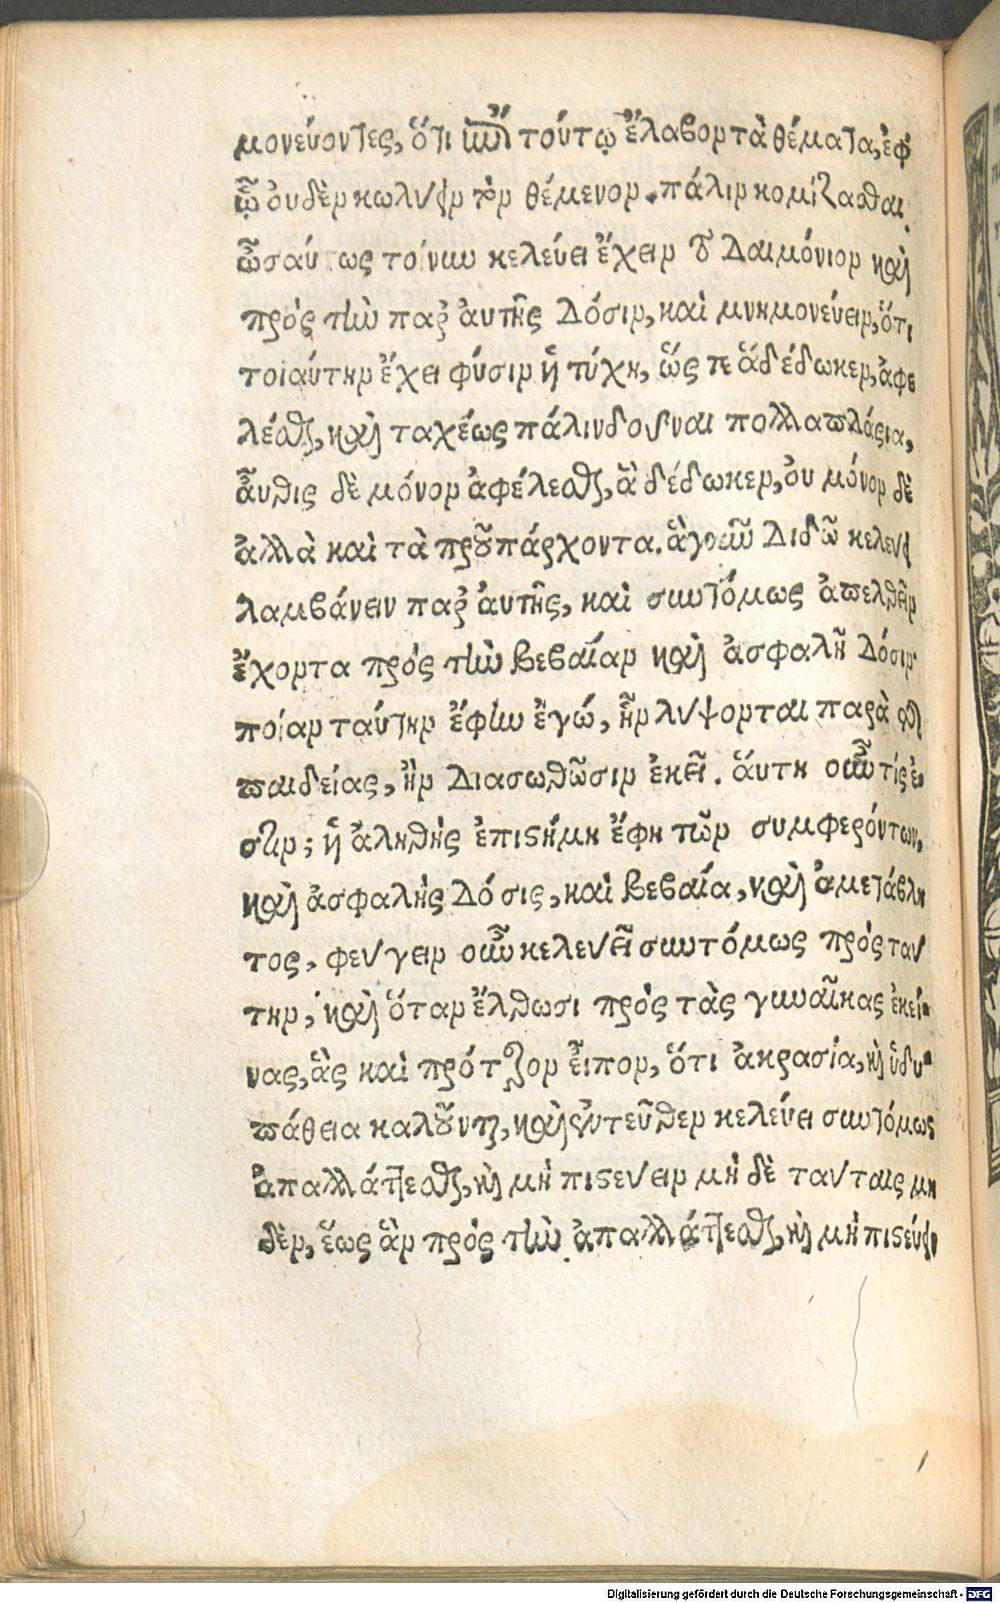 μονεύοντες, ὅτι ἐπὶ τούτῳ ἔλαβον τὰ θέματα, ἐφ᾽
ᾧ οὐδὲν κωλύει τὸν θέμενον. πάλιν κομίζασθαι.
ὡσαύτως τοίνυν κελεύει ἔχειν τὸ Δαιμόνιον καὶ
πρὸς τὴν παρ᾽ αὐτῆς Δόσιν, καὶ μνημονεύειν, ὅτι
τοιαύτην ἔχει φύσιν ἡ τύχη, ὥς τε ἃ δέδωκεν, ἀφε
λέσθαι, καὶ ταχέως πάλιν δοῦναι πολλαπλάσια,
αὖθις δὲ μόνον ἀφέλεσθαι, ἃ δέδωκεν, οὐ μόνον δὲ
ἀλλὰ καὶ τὰ προϋπάρχοντα. ἃ γοῦν Διδῶ κελεύει
λαμβάνειν παρ᾽ αὐτῆς, καὶ συντόμως ἀπελθεῖν
ἔχοντα πρὸς τὴν βεβαίαν καὶ ἀσφαλῆ Δόσιν
ποίαν ταύτην ἔφην ἐγώ, ἣν λύψονται παρὰ τῆς
παιδείας, ἢν Διασωθῶσιν ἐκεῖ. αὕτη οὖν τίς ἐ-
στιν; ἡ ἀληθὴς ἐπιστήμη ἔφη τῶν συμφερόντων,
καὶ ἀσφαλὴς Δόσις, καὶ βεβαία, καὶ ἀμετάβλη
τος, φεύγειν οὖν κελεύει συντόμως πρὸς ταύ
την, καὶ ὅταν ἔλθωσι πρὸς τὰς γυναῖκας ἐκεί-
νας, ἃς καὶ πρότερον εἶπον, ὅτι ἀκρασία, καὶ ἡδυ-
πάθεια καλοῦνται, καὶ ἐντεῦθεν κελεύει συντόμως
ἀπαλλάττεσθαι, καὶ μὴ πιστεύειν μὴ δὲ ταύταις μη
δὲν, ἕως ἂν πρὸς τὴν ἀπαλλάττεσθαι, καὶ μὴ πιστεύειν
Digitalisierung gefördert durch die Deutsche Forschungsgemeinschaft - DFG